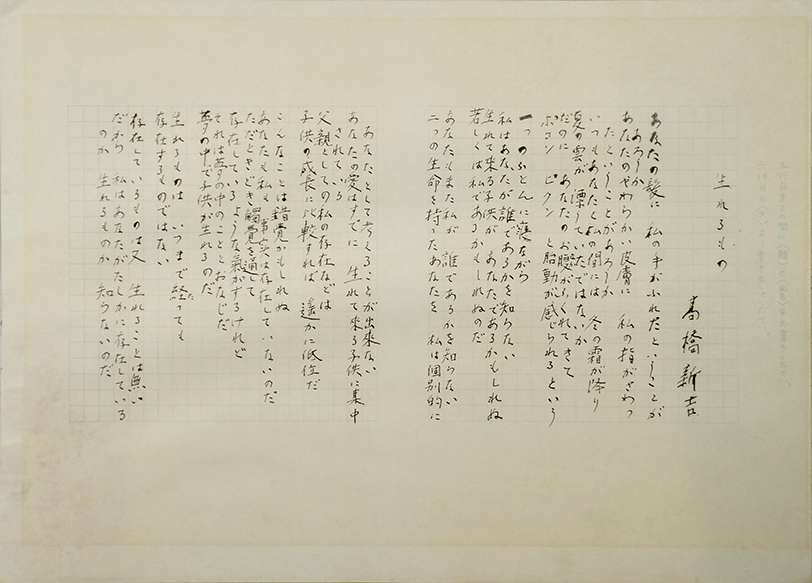 生れるもの
高橋新吉
あなたの髪に 私の手がふれたということが
あろうか
あなたのやわらかい皮膚に 私の指がさわっ
たということがあろうか
いつもあなたと私の間には 冬の霜が降り
夏の雲が 漂うていたではないか
だのに あなたのお腹がふくれてきて
ポコン ピクン と胎動が感じられるという
一つのふとんに寝ながら
私はあなたが誰であるかを知らない
生れて来る子供が あなたであるかもしれぬ
若しくは私であるかもしれぬのだ
あなたもまた私が 誰であるかを知らない
二つの生命を持ったあなたを 私は個別的に
あなたとして考えることが出来ない
あなたの愛はすでに 生れて来る子供に集中
されている
父親としての私の存在などは
子供の成長に比較すれば 遥かに低位だ
こんなことは錯覚かもしれぬ
あなたも私も 事実は存在していないのだ
ただときどき觸覺を通して
存在しているような氣がするけれど
それは夢の中のこととおなじだ
夢の中で子供が生れるのだ
生れるものは いつまで経っても
存在するものではない
存在しているものは又 生れることは無い
だから 私はあなたがたしかに存在している
のか 生れるものか 知らないのだ